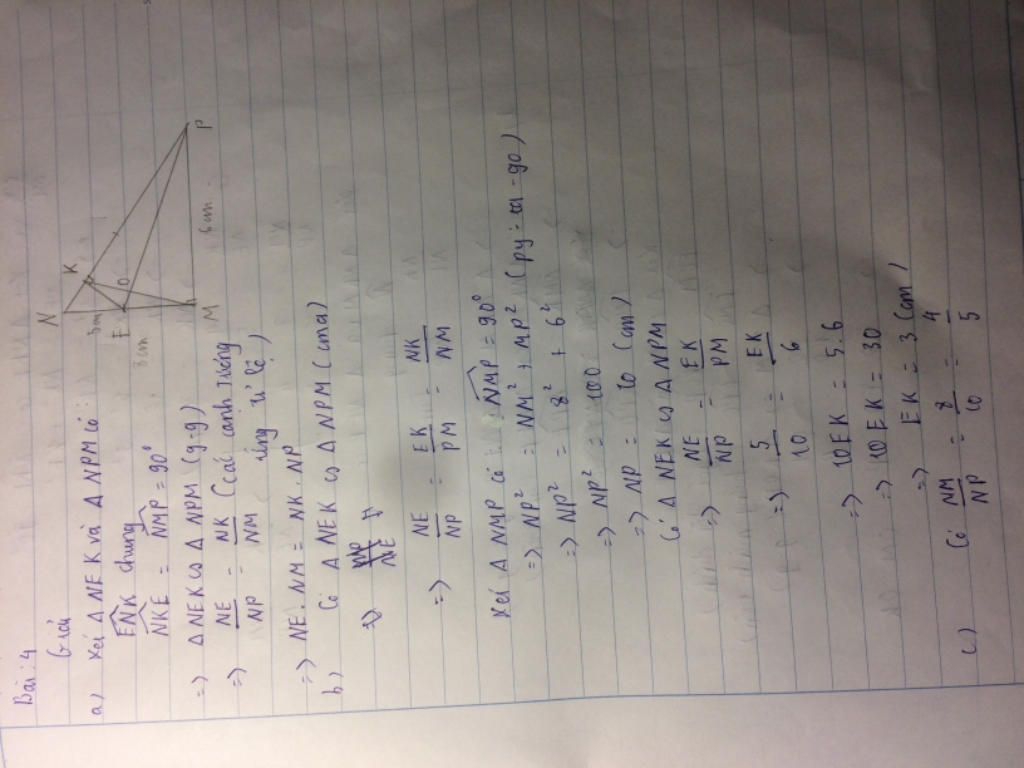 Bài: 4
Giải
N
K
3cm
E
O
8cm
M
6cm
P
a) Xét Δ NEK và Δ NPM có:
ENK chung
NKE = NMP = 90°
=> Δ NEK ∽ Δ NPM (g-g)
=> NE/NP = NK/NM (các cạnh tương
ứng tỉ lệ)
=> NE. NM = NK. NP
b) Có Δ NEK ∽ Δ NPM (cma)
=> NE/NP = EK/PM = NK/NM
Xét Δ NMP có NMP = 90°
=> NP² = NM² + MP² (py-ta-go)
=> NP² = 8² + 6²
=> NP² = 100
=> NP = 10 (cm)
Có Δ NEK ∽ Δ NPM
=> NE/NP = EK/PM
=> 5/10 = EK/6
=> 10EK = 5.6
=> 10EK = 30
=> EK = 3 (cm)
c) Có NM/NP = 8/10 = 4/5